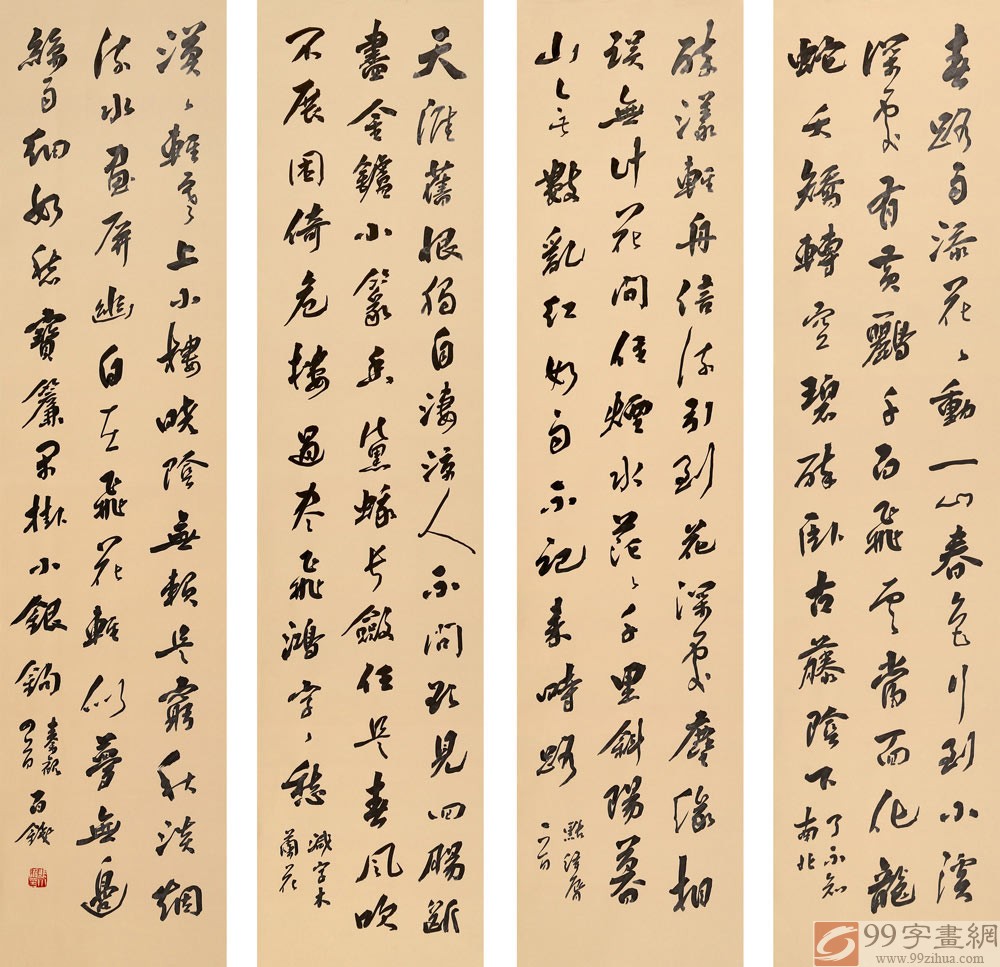 春路雨添花〻動一山春色行到小溪
深處有黃鸝千百飛雲當面化龍
蛇夭矯轉空碧醉臥古藤陰下
了不知
南北
醉漾輕舟信流引到花深處塵緣相
誤無計花間住煙水茫〻千里斜陽暮
山〻無數亂紅如雨不記來時路
點絳唇
天涯舊恨獨自淒涼人不問欲見回腸斷
盡金鑪小篆香黛蛾長斂任是春風吹
不展困倚危樓過盡飛鴻字〻愁
減字木
蘭花
漠〻輕寒上小樓曉陰無賴是窮秋淡烟
流水畫屏幽自在飛花輕似夢無邊
絲雨細如愁寶簾閑掛小銀鉤
秦觀
四首
99字畫網
www.99zihua.com